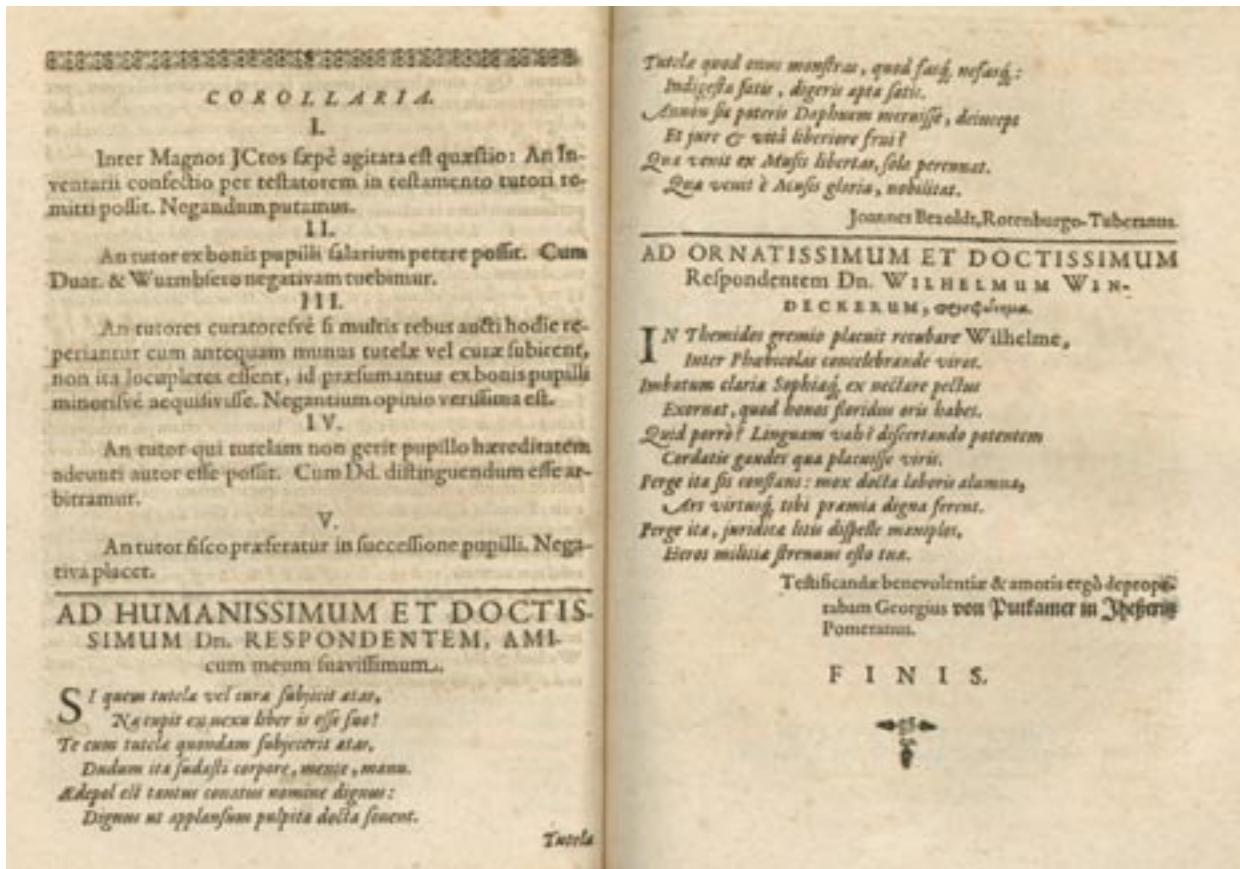 COROLLARIA.
I.
Inter Magnos JCtos sæpè agitata est quæstio: An In-
ventarii confectio per testatorem in testamento tutori re-
mitti possit. Negandum putamus.
II.
An tutor ex bonis pupilli salarium petere possit. Cum
Duar. & Wurmbsero negativam tuebimur.
III.
An tutores curatoresvé si multis rebus aucti hodie re-
periantur cum antequam munus tutelæ vel curæ subirent,
non ita locupletes essent, id præsumantur ex bonis pupilli
minorisvé acquisivisse. Negantium opinio verissima est.
IV.
An tutor qui tutelam non gerit pupillo hæreditatem
adeunti autor esse possit. Cum Dd. distinguendum esse ar-
bitramur.
V.
An tutor fisco præferatur in successione pupilli. Nega-
tiva placet.
AD HUMANISSIMUM ET DOCTIS-
SIMUM Dn. RESPONDENTEM, AMI-
cum meum suavissimum.
SI quem tutela vel cura subjicit ætas,
Næ cupit ex nexu liber is esse suo!
Te cum tutelæ quondam subjecerit ætas,
Dudum ita sudasti corpore, mente, manu.
Ædepol est tantus conatus nomine dignus:
Dignus ut applausum pulpita docta sonent.
Tutelæ
Tutelæ quod onus monstras, quod fasq́, nefasq́:
Indigesta satis, digeris apta satis.
Annon sic poteris Daphnum meruisse, deincept
Et jure & vitâ liberiore frui?
Quæ venit ex Musis libertas, sola perennat.
Quæ venit è Musis gloria, nobilitat.
Joannes Bezoldt, Rotenburgo-Tuberanus.
AD ORNATISSIMUM ET DOCTISSIMUM
Respondentem Dn. WILHELMUM WIN-
DECKERUM,
IN Themides gremio placuit recubare Wilhelme,
Inter Phœbicolas concelebrande viros.
Imbutum clariæ Sophiæq́, ex nectare pectus
Exornat, quod honos floridus oris habes.
Quid porrò? Linguam vah! dissertando potentem
Cordatis gaudes qua placuisse viris.
Perge ita sis constans: mox docta laboris alumna,
Ars virtusq́, tibi præmia digna ferent.
Perge ita, juridicæ litis dispelle maniples,
Heros militiæ strenuus esto tuæ.
Testificandæ benevolentiæ & amoris ergò deprope-
rabam Georgius von Putkamer in
Pomeranus.
FINIS.